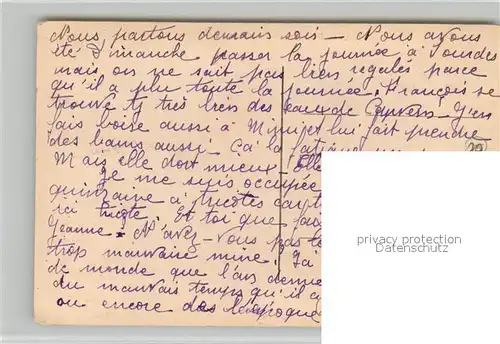 Nous partons demain soir – Nous avons
été Dimanche passer la journée à Lourdes
mais on ne sait pas bien régalés parce
qu'il a plu toute la journée. François se
trouve tj très bien des eaux de Capvern – J'en
fais boire aussi à Mimi et lui fait prendre
des bains aussi – Ça la fatigue
Mais elle dort mieux. Elle
Je me suis occupée
quinzaine à tricoter
ici tricote. Et toi que fais
Jeanne – N'avez-vous pas
trop mauvaise mine. J'ai
de monde que l'an dernier
du mauvais temps qu'il
ou encore des
privacy protection
www.oldthing.de
29